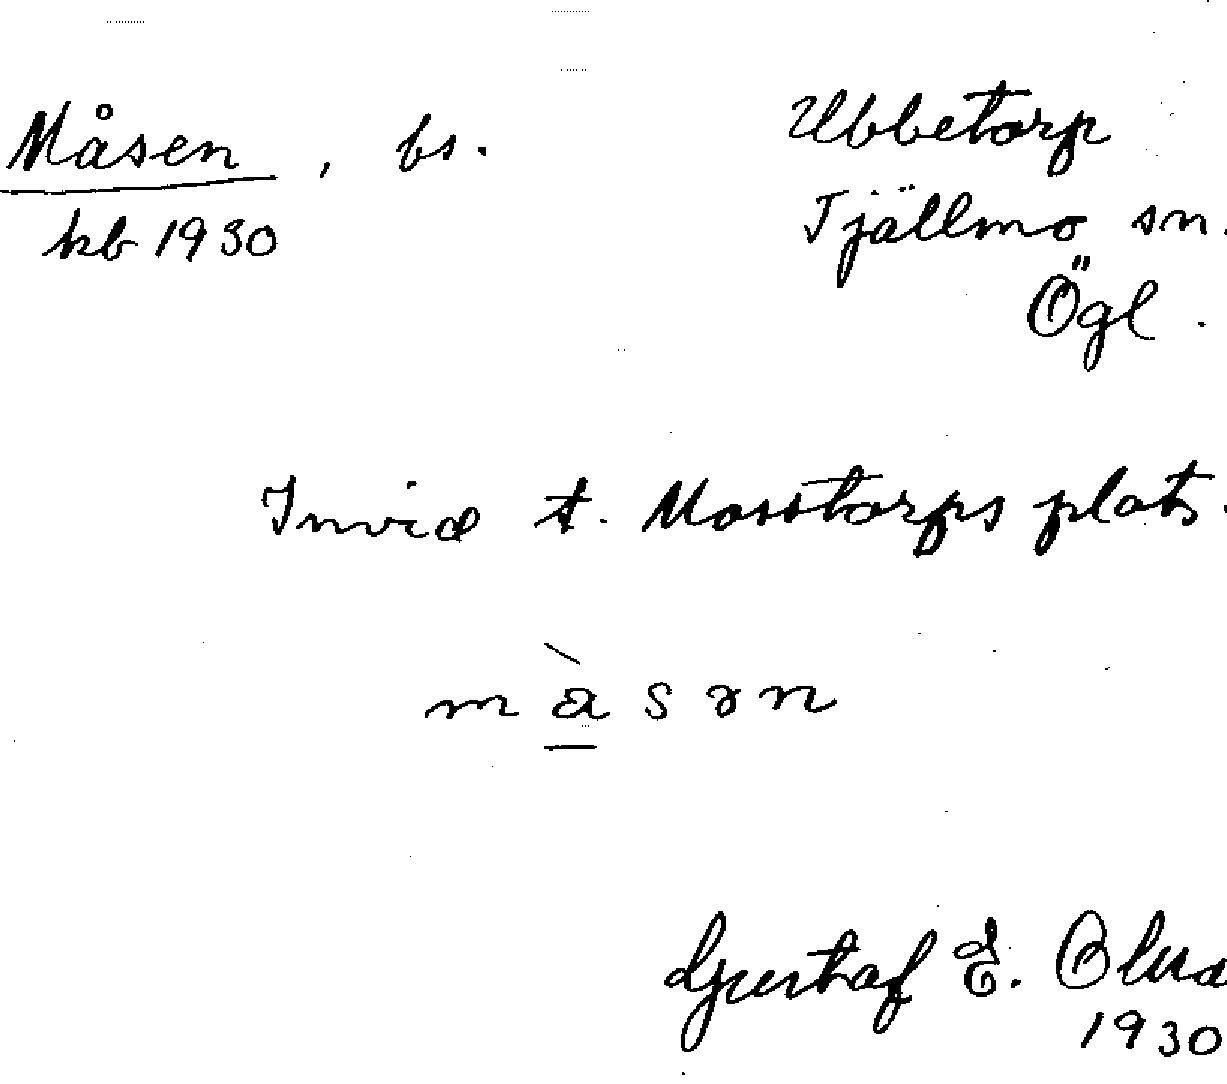 Måsen, bs. Ubbetorp
kb 1930 Tjällmo sn.
Ögl.
Invid t. Mosstorps plats.
màsən
Gustaf E. Olus
1930